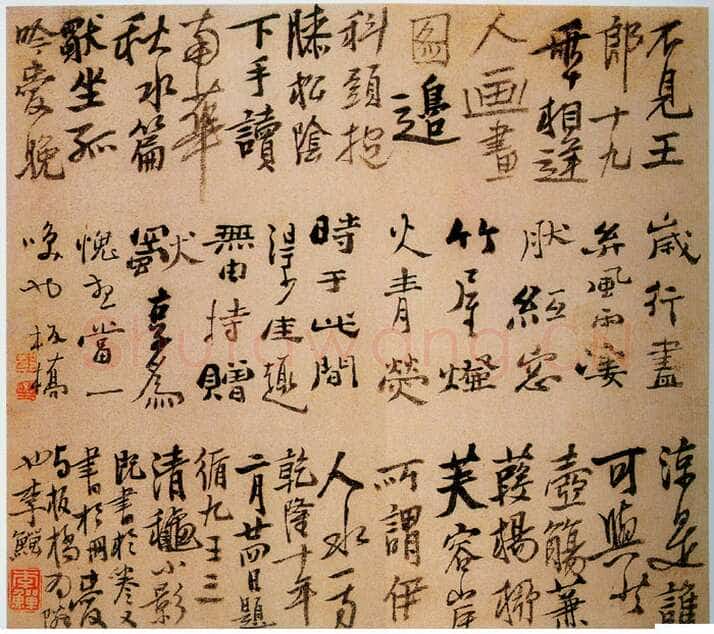 不見王
郎十九
年相逢
人画畫
図邉
科頭抱
膝松陰
下手讀
南華
秋水篇
默坐孤
吟愛晚
歲行盡
矣風雨凄
肰紙窓
竹屋燈
火青熒
時于此間
得少佳趣
無由持贈
獨享為
愧想當一
喚也板橋
涼是誰
可與共
壺觴蒹
葭楊柳
芙容岸
所謂伊
人水一方
乾隆十年
二月廿四日題
循九王三
清穐小影
既書於卷又
書於冊
与板橋為隣
也李鱓
李鱓
shufawang.CN